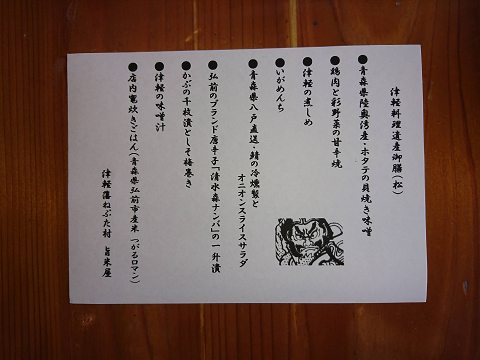 津軽料理遺産御膳(松)
●青森県陸奥湾産・ホタテの貝焼き味噌
●鶏肉と彩野菜の甘辛焼
●津軽の煮しめ
●いがめんち
●青森県八戸直送・鯖の冷燻製と
オニオンスライスサラダ
●弘前のブランド唐辛子「清水森ナンバ」の一升漬
●かぶの千枚漬としそ梅巻き
●津軽の味噌汁
●店内竃炊きごはん(青森県弘前市産米 つがるロマン)
津軽藩ねぷた村 旨米屋